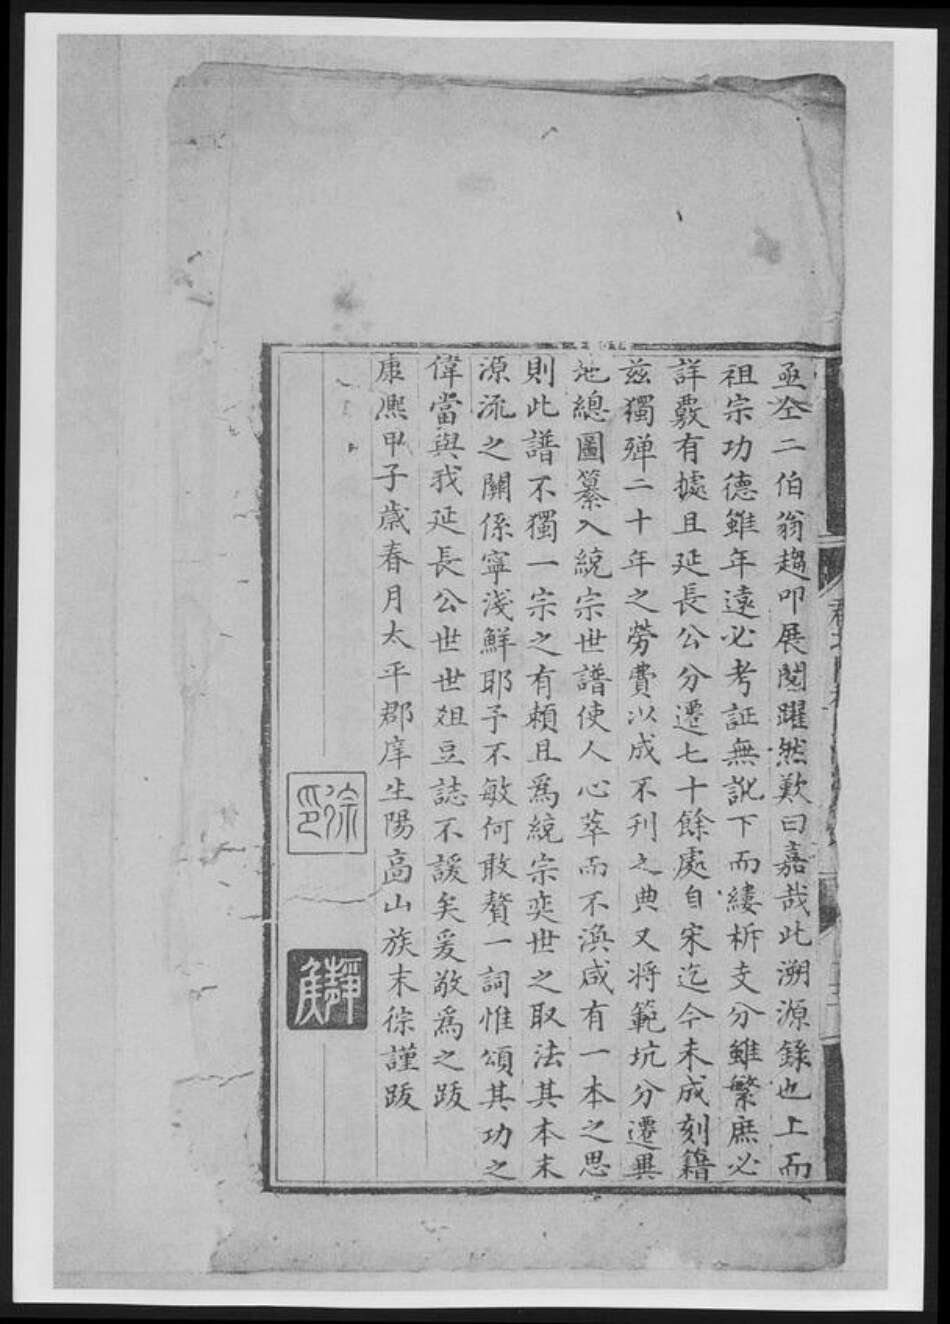 亟仝二伯翁趨叩展閱躍然歎曰嘉哉此溯源錄也上而
祖宗功德雖年遠必考証無訛下而縷析支分雖繁庶必
詳覈有據且延長公分遷七十餘處自宋迄今未成刻籍
兹獨殫二十年之勞費以成不刋之典又将範坑分遷異
地總圖纂入統宗世譜使人心萃而不渙咸有一本之思
則此譜不獨一宗之有頼且為統宗奕世之取法其本末
源流之關係寧淺鮮耶予不敏何敢贅一詞惟頌其功之
偉當與我延長公世世俎豆誌不諼矣爰敬為之跋
康熈甲子歲春月太平郡庠生陽高山族末徐謹跋
徐印